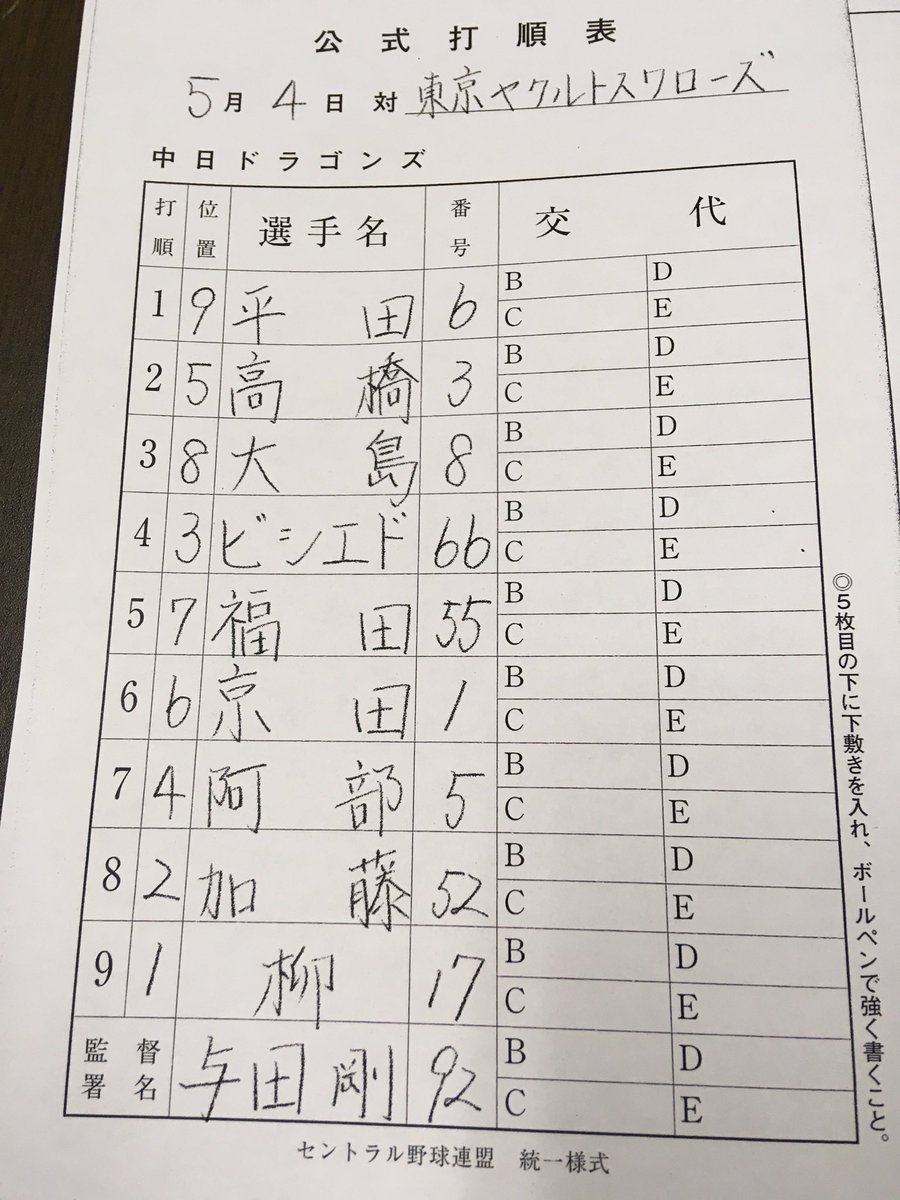 公式打順表
5月4日 対 東京ヤクルトスワローズ
中日ドラゴンズ
打順 位置 選手名 番号 交代
1 9 平田 6 B D
C E
2 5 高橋 3 B D
C E
3 8 大島 8 B D
C E
4 3 ビシエド 66 B D
C E
5 7 福田 55 B D
C E
6 6 京田 1 B D
C E
7 4 阿部 5 B D
C E
8 2 加藤 52 B D
C E
9 1 柳 17 B D
C E
監督署名 与田剛 92 B D
C E
◎5枚目の下に下敷きを入れ、ボールペンで強く書くこと。
セントラル野球連盟 統一様式